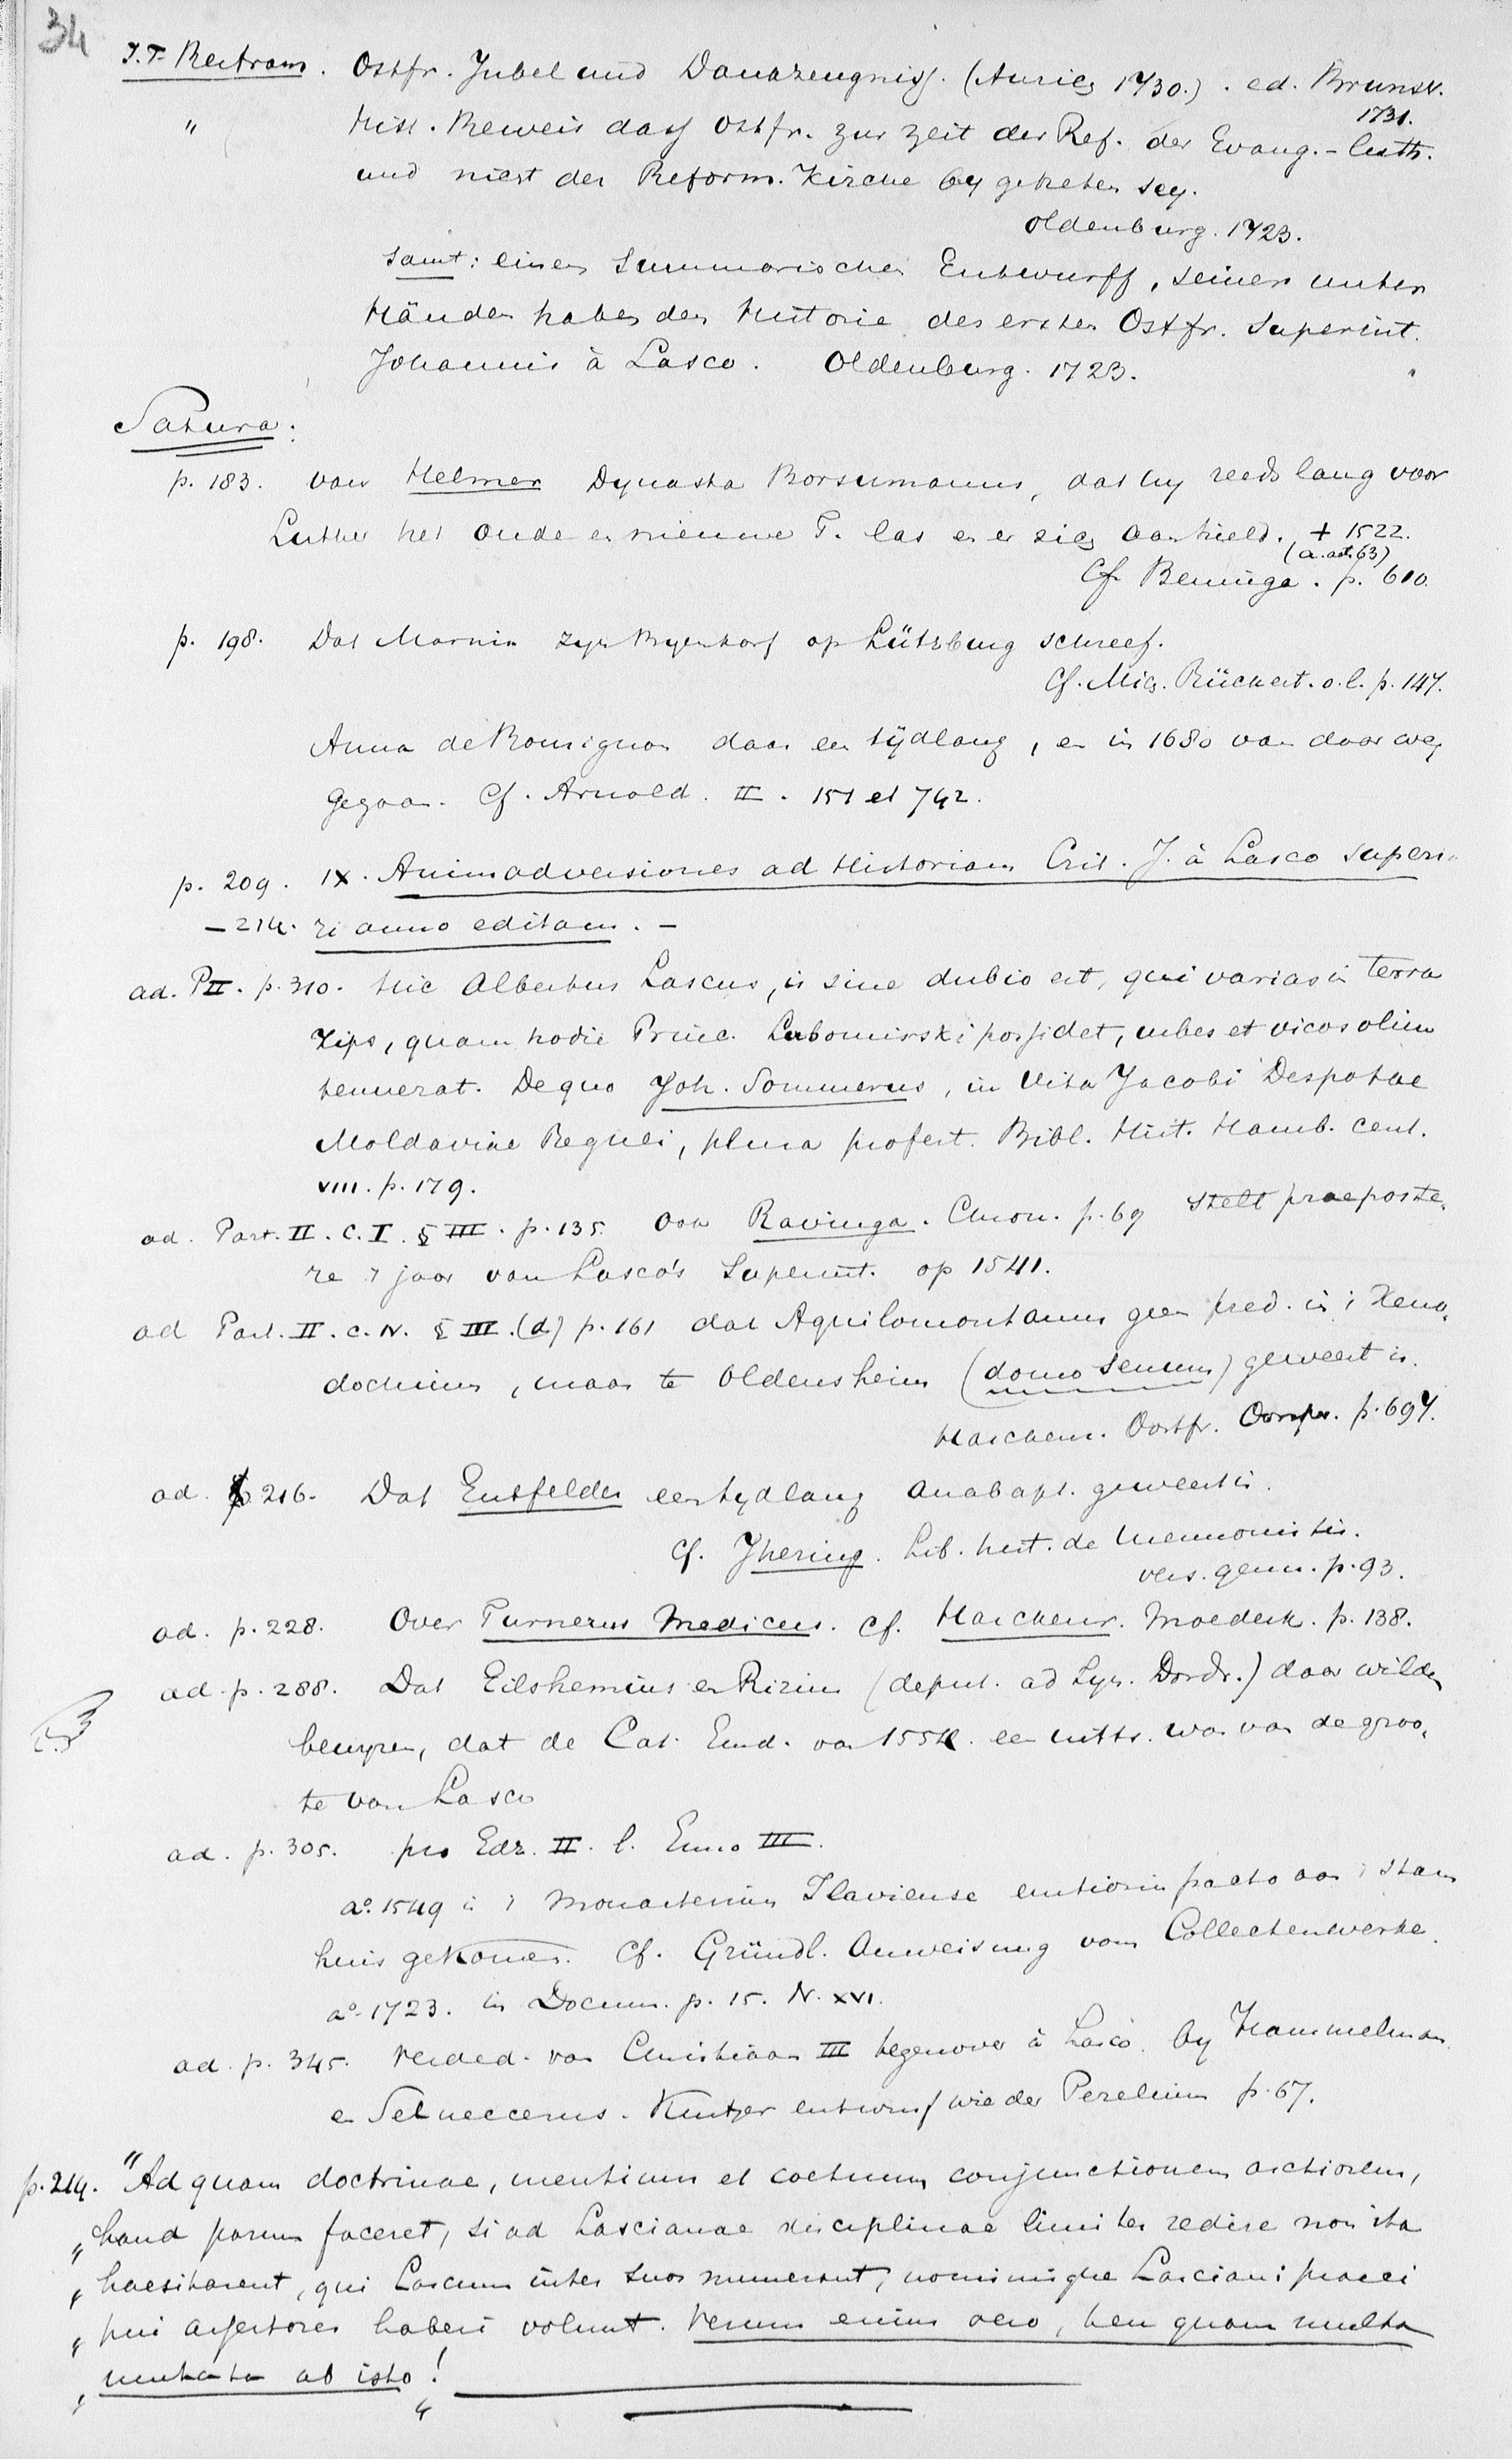 34
J. F. Bertram. Ostfr. Jubel und Dankzeugniss. (Aurich 1730.). ed. Brunsv. 1731.
" Hist. Beweis dass Ostfr. zur Zeit der Ref. der Evang.-luth.
und nicht der Reform. Kirche bey getreten sey.
Oldenburg. 1723.
samt: einen Summarischen Entwurff, seiner unter
Händen habenden Historie des ersten Ostfr. Superint.
Johannis à Lasco. Oldenburg. 1723.
Satura:
p. 183. van Helmer Dynasta Borsumanus, dat hy reeds lang voor
Luther het Oude en nieuwe T. las en er zich aan hield. + 1522.
(a. aet. 63)
Cf. Beninga. p. 610.
p. 198. Dat Marnix zyn Byenkorf op Lützburg schreef.
Cf. Mich. Rückert. o. l. p. 147.
Anna de Bourignon daar een tijdlang, en in 1680 van daar weg
gegaan. Cf. Arnold. II. 151 et 742.
p. 209. IX. Animadversiones ad Historiam Crit. J. à Lasco superi-
-214. ri anno editam. -
ad. P II. p. 310. Hic Albertus Lascus, is sine dubio est, qui varias in terra
Zips, quam hodie Princ. Lubomirski possidet, urbes et vicos olim
tenuerat. De quo Joh. Sommerus, in Vita Jacobi Despotae
Moldaviae Reguli, plura profert. Bibl. Hist. Hamb. cent.
VIII. p. 179.
ad. Part. II. C. I. § III. p. 135. Ook Ravinga. Chron. p. 69 stelt praeposte-
re 't jaar van Lasco's Superint. op 1541.
ad Part. II. c. IV. § III. (d) p. 161 dat Aquilomontanus geen pred. in 't Xeno-
dochium, maar te Oldersheim (domo senum) geweest is.
Harckenr. Oostfr. Oorspr. p. 697.
ad. p. 216. Dat Entfelder een tydlang anabapt. geweest is.
Cf. Jhering. Lib. hist. de Mennonistis.
vers. germ. p. 93.
ad. p. 228. Over Turnerus Medicus. cf. Harckenr. Moederk. p. 138.
ad p. 288. Dat Eilshemius en Rizius (deput. ad Syn. Dordr.) daar wilden
bewyzen, dat de Cat. Emd. van 1554 een uittr. was van de groo-
te van Lasco
ad. p. 305. pro Edz. II. l. Enno III.
a° 1549 is 't Monasterium Ilaviense emtionis pacto aan 't stam
huis gekomen. Cf. Gründl. Anweisung vom Collectenwerke.
a° 1723. in Docum. p. 15. N. XVI.
ad. p. 345. Verded. van Christiaan III tegenover à Lasco. by Hammelman
en Selneccerus. Kurtzer entwurf wieder Pezelium p. 67.
p. 214. "Ad quam doctrinae, mentium et coetuum conjunctionem arctiorem,
„haud parum faceret, si ad Lascianae disciplinae limites redire non ita
„haesitarent, qui Lascum inter suos numerant, nominisque Lasciani praeci
„pui assertores haberi volunt. Verum enim vero, heu quam multa
„mutata ab isto!"